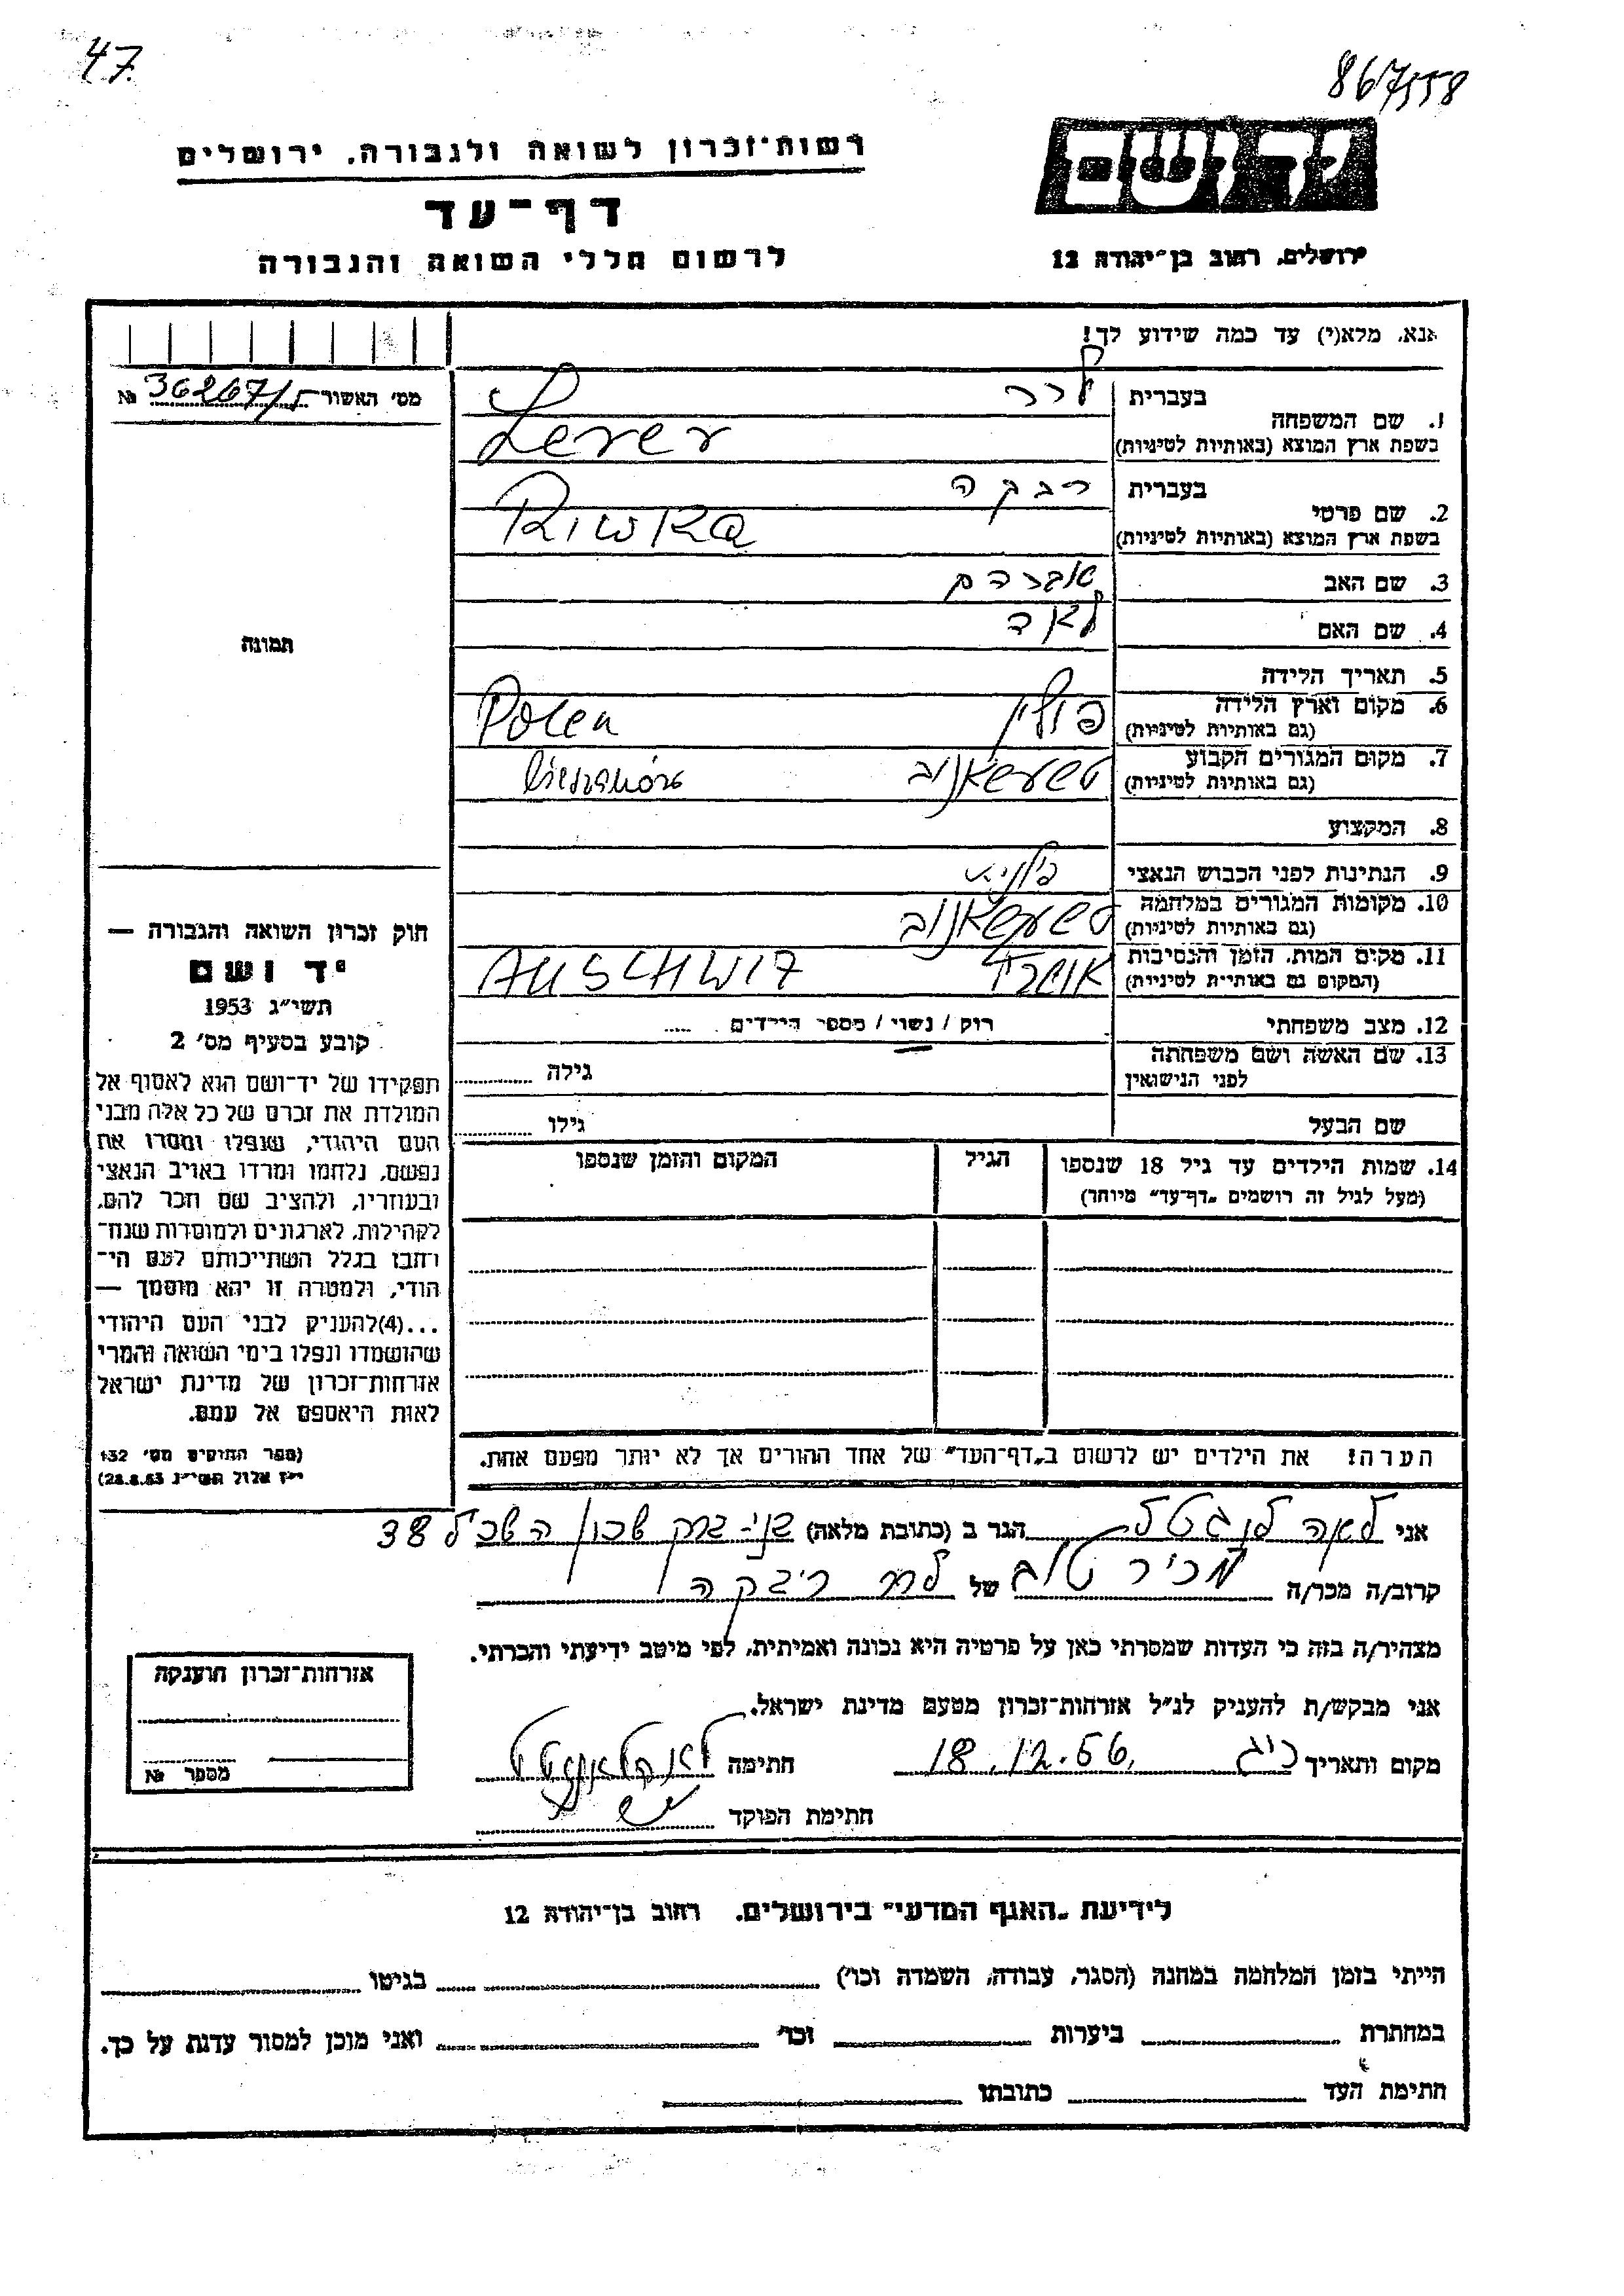 47.
867/558
רשות־זכרון לשואה ולגבורה, ירושלים
דף־עד
לרשום חללי השואה והגבורה
יד ושם
ירושלים, רחוב בן־יהודה 12
אנא, מלא(י) עד כמה שידוע לך!
מס׳ האשור 36267/5 №
תמונה
1. שם המשפחה
בעברית לרר
בשפת ארץ המוצא (באותיות לטיניות) Lerer
2. שם פרטי
בעברית רבקה
בשפת ארץ המוצא (באותיות לטיניות) Riwka
3. שם האב אברהם
4. שם האם לאה
5. תאריך הלידה
6. מקום וארץ הלידה פולין Polen
(גם באותיות לטיניות)
7. מקום המגורים הקבוע
(גם באותיות לטיניות)
8. המקצוע
9. הנתינות לפני הכבוש הנאצי
10. מקומות המגורים במלחמה
(גם באותיות לטיניות)
11. מקום המות, הזמן והנסיבות AUSCHWIZ
(המקום גם באותיות לטיניות)
12. מצב משפחתי רוק / נשוי / מספר הילדים .....
13. שם האשה ושם משפחתה גילה
לפני הנישואין
שם הבעל גילו
14. שמות הילדים עד גיל 18 שנספו הגיל המקום והזמן שנספו
(מעל לגיל זה רושמים „דף־עד״ מיוחד)
הערה! את הילדים יש לרשום ב„דף־העד״ של אחד ההורים אך לא יותר מפעם אחת.
חוק זכרון השואה והגבורה —
יד ושם
תשי״ג 1953
קובע בסעיף מס׳ 2
תפקידו של יד־ושם הוא לאסוף אל
המולדת את זכרם של כל אלה מבני
העם היהודי, שנפלו ומסרו את
נפשם, נלחמו ומרדו באויב הנאצי
ובעוזריו, ולהציב שם וזכר להם,
לקהילות, לארגונים ולמוסדות שנח־
רבו בגלל השתייכותם לעם הי־
הודי, ולמטרה זו יהא מוסמך —
...(4)להעניק לבני העם היהודי
שהושמדו ונפלו בימי השואה והמרי
אזרחות־זכרון של מדינת ישראל
לאות היאספם אל עמם.
(ספר החוקים מס׳ 132
י״ז אלול תשי״ג 28.8.53)
אני לאה הגר ב (כתובת מלאה) בני-ברק שכון 38
קרוב/ה מכר/ה מכיר טוב של לרר ריבקה
מצהיר/ה בזה כי העדות שמסרתי כאן על פרטיה היא נכונה ואמיתית, לפי מיטב ידיעתי והכרתי.
אני מבקש/ת להעניק לנ״ל אזרחות־זכרון מטעם מדינת ישראל.
מקום ותאריך 18.12.56 חתימה
חתימת הפוקד
אזרחות־זכרון הוענקה
מספר №
לידיעת „האגף המדעי״ בירושלים, רחוב בן־יהודה 12
הייתי בזמן המלחמה במחנה (הסגר, עבודה, השמדה וכו׳) בגיטו
במחתרת ביערות וכו׳ ואני מוכן למסור עדות על כך.
חתימת העד כתובתו